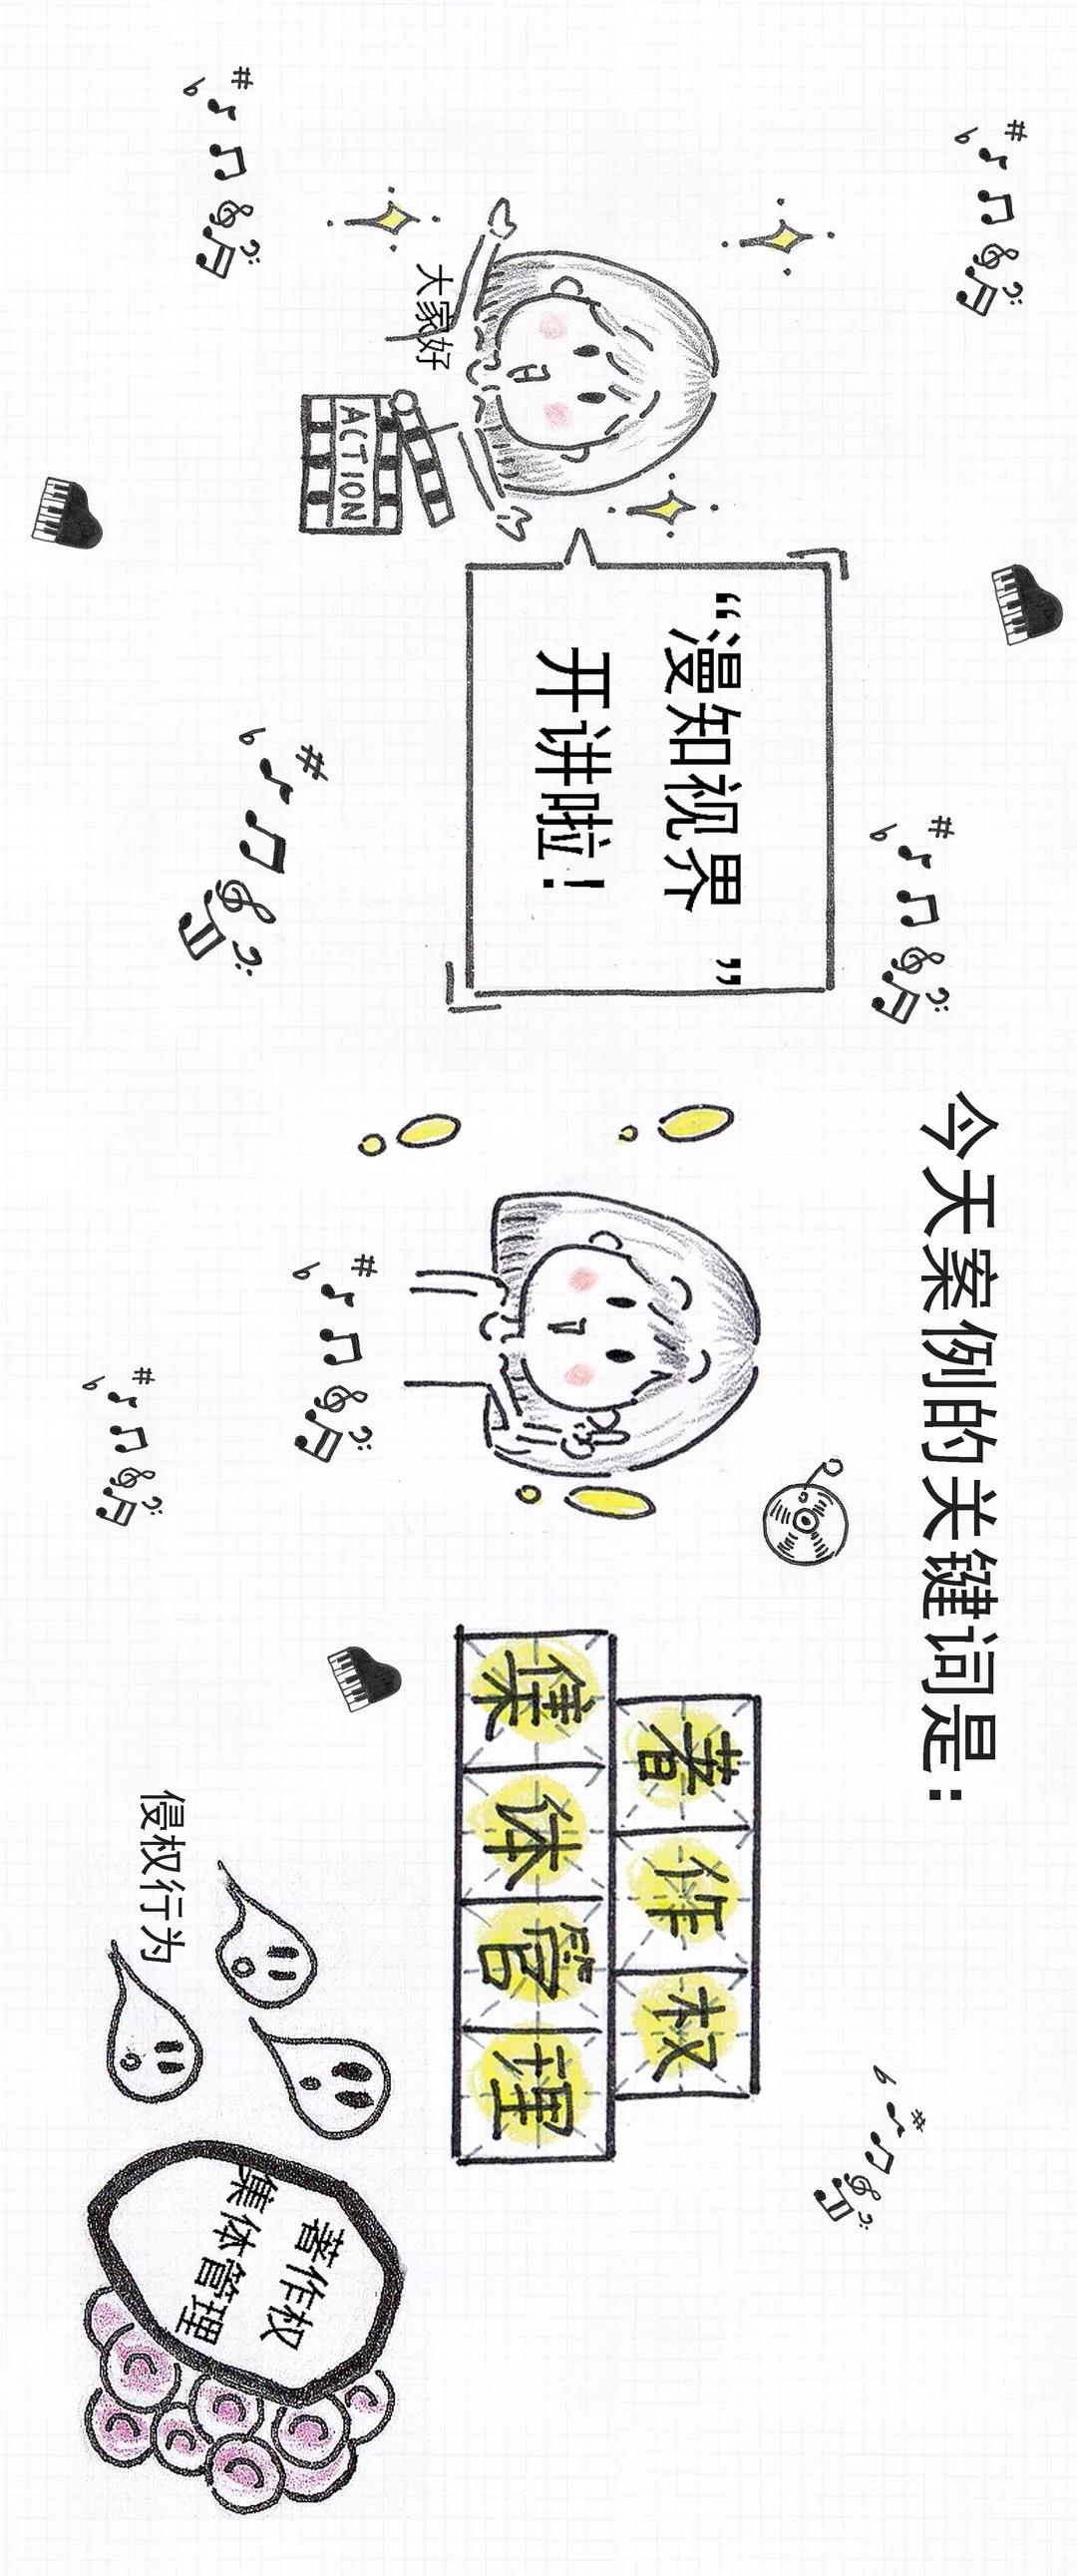 大家好
ACTION
“漫知视界”
开讲啦！
今天案例的关键词是：
著作权
集体管理
侵权行为
著作权
集体管理